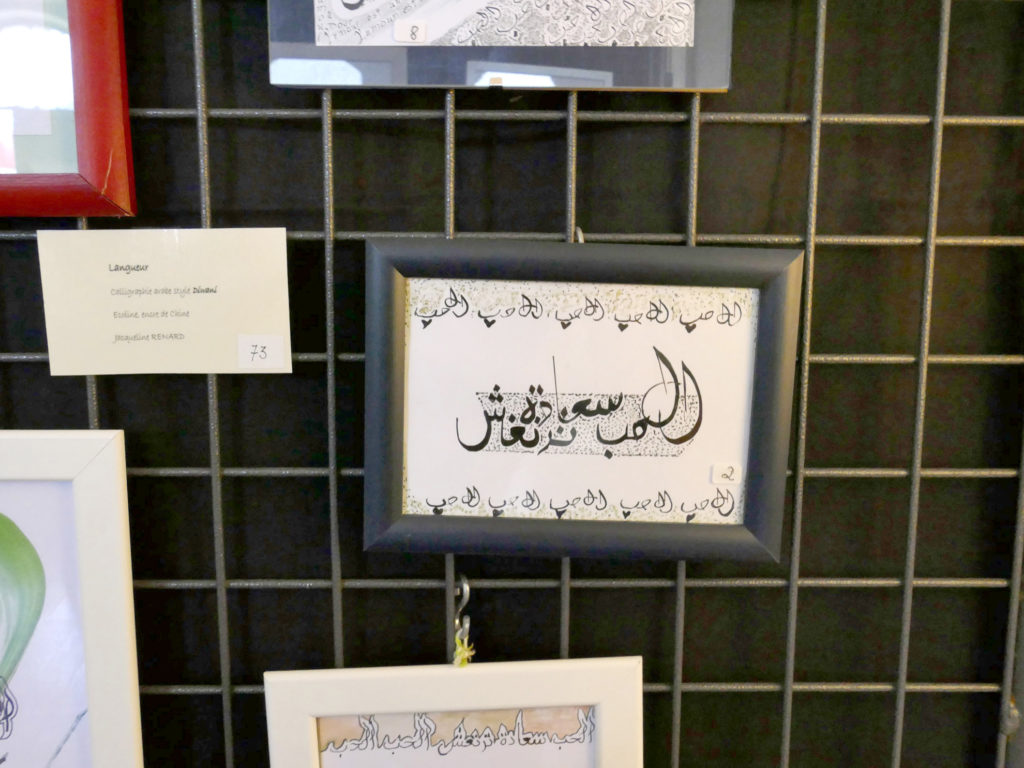 8
Langueur
Calligraphie arabe style Diwani
Ecoline, encre de Chine
Jacqueline RENARD
73
الحب الحب الحب الحب الحب
الحب سعادة ترتعش
2
الحب الحب الحب الحب الحب
الحب سعادة ترتعش الحب الحب